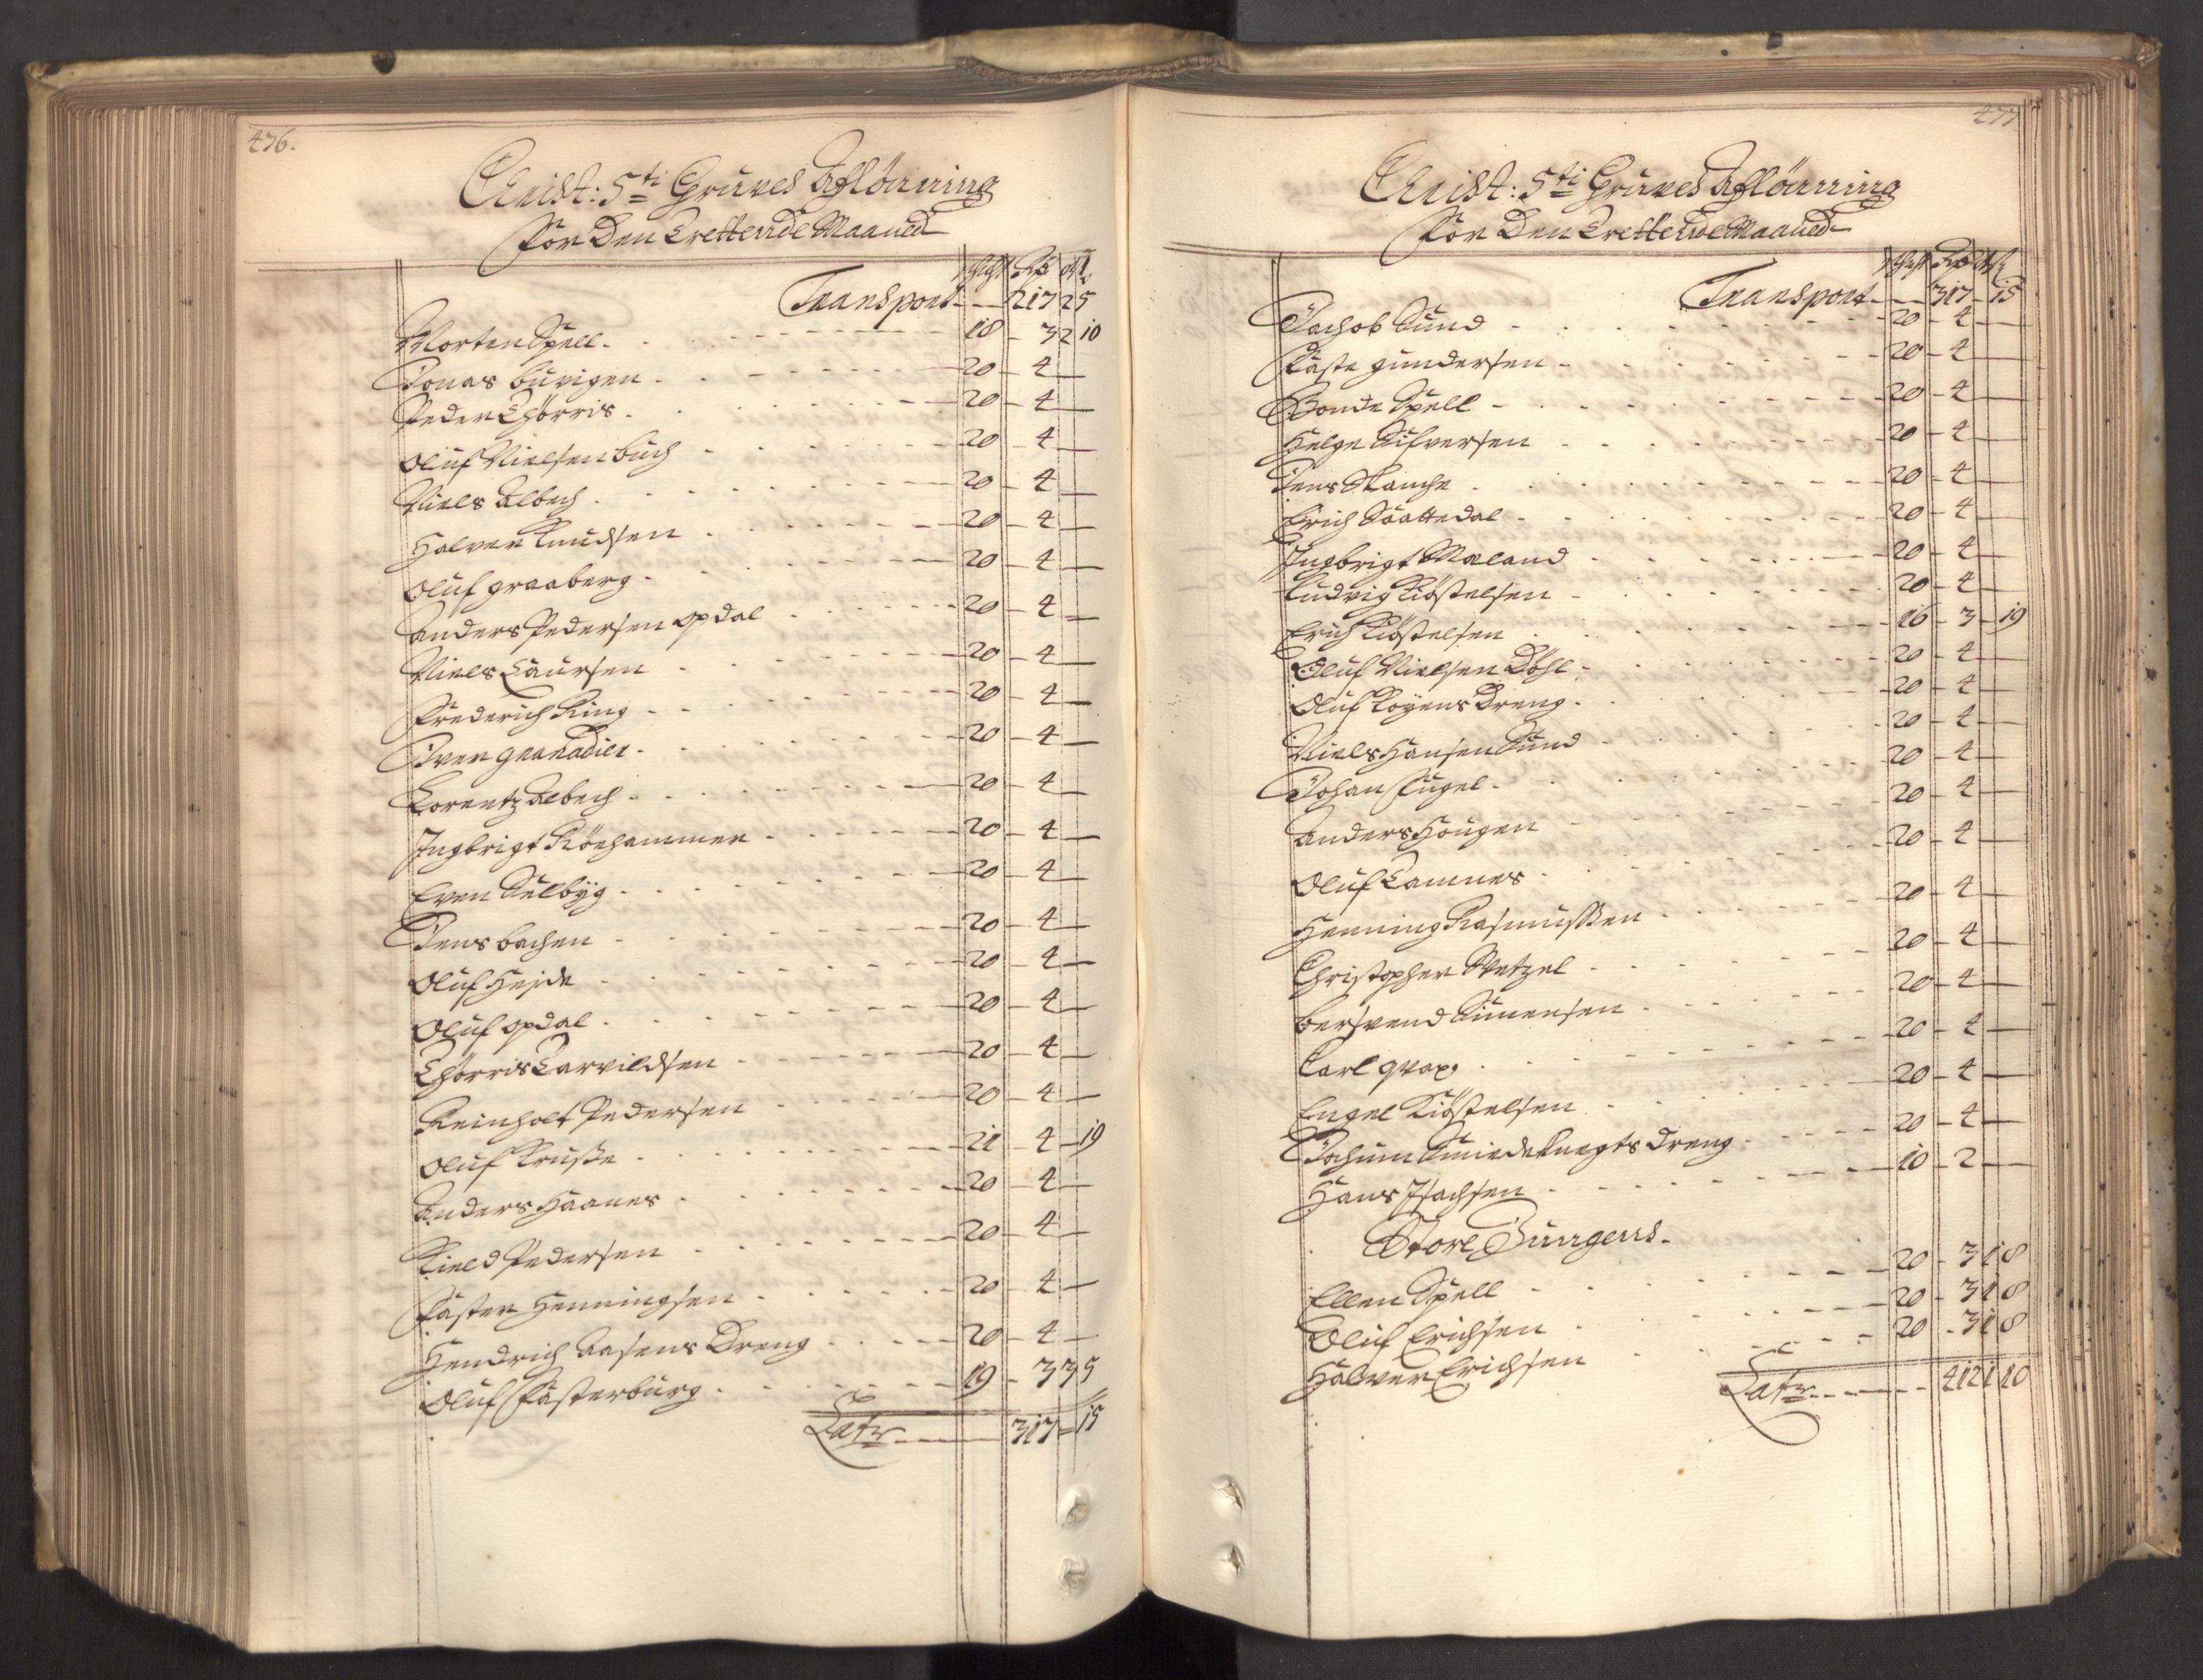 476.
Christ: 5ti Gruves Aflönning
For Den Trettende Maaned
Transport - - 217 2 5
Morten Spell - 18 - 3 2 10
Jonas buvigen - 20 - 4 -
Peder Thörris - 20 - 4 -
Oluf Nielsen buch - 20 - 4 -
Niels Albech - 20 - 4 -
Halver Knudsen - 20 - 4 -
Oluf graaberg - 20 - 4 -
Anders Pedersen opdal - 20 - 4 -
Niels Laursen - 20 - 4 -
Friderich Ring - 20 - 4 -
Iver granadier - 20 - 4 -
Lorentz Albech - 20 - 4 -
Ingbrigt Röehammer - 20 - 4 -
Even Selbÿg - 20 - 4 -
Jens bachen - 20 - 4 -
Oluf Hejde - 20 - 4 -
Oluf opdal - 20 - 4 -
Thörris Tarvildsen - 20 - 4 -
Reinholt Pedersen - 20 - 4 -
Oluf Kruse - 21 - 4 - 19
Anders Haanes - 20 - 4 -
Kield Pedersen - 20 - 4 -
Faster Henningsen - 20 - 4 -
Hendrich Aasens Dreng - 20 - 4 -
Oluf Fasterburg - 19 - 3 3 5
Latr - 317 - 15
477
Christ: 5ti Gruves Aflönning
For Den Trettende Maaned
Transport - - 317 - 15
Jachob Lund - 20 - 4 -
Faste gundersen - 20 - 4 -
Bonde Spell - 20 - 4 -
Helge Silversen - 20 - 4 -
Jens Stauche - 20 - 4 -
Erich Saattedal - 20 - 4 -
Ingbrigt Maland - 20 - 4 -
Ludvig Kiöstelsen - 20 - 4 -
Erich Kiöstelsen - 16 - 3 - 19
Oluf Nielsen Döhl - 20 - 4 -
Oluf Coyens Dreng - 20 - 4 -
Niels Hansen Lund - 20 - 4 -
Johan Fugel - 20 - 4 -
Anders Hougen - 20 - 4 -
Oluf Tamnes - 20 - 4 -
Henning Rasmussen - 20 - 4 -
Christopher Wetzel - 20 - 4 -
bersvend Simensen - 20 - 4 -
Carl qvap - 20 - 4 -
Engel Kiöstelsen - 20 - 4 -
Jochum Smiedeknegts Dreng - 20 - 4 -
Hans Isachsen - 10 - 2 -
Store Jungens.
Ellen Spell - 20 - 3 1 8
Oluf Erichsen - 20 - 3 1 8
Halver Erichsen - 20 - 3 1 8
Latr - 412 1 20